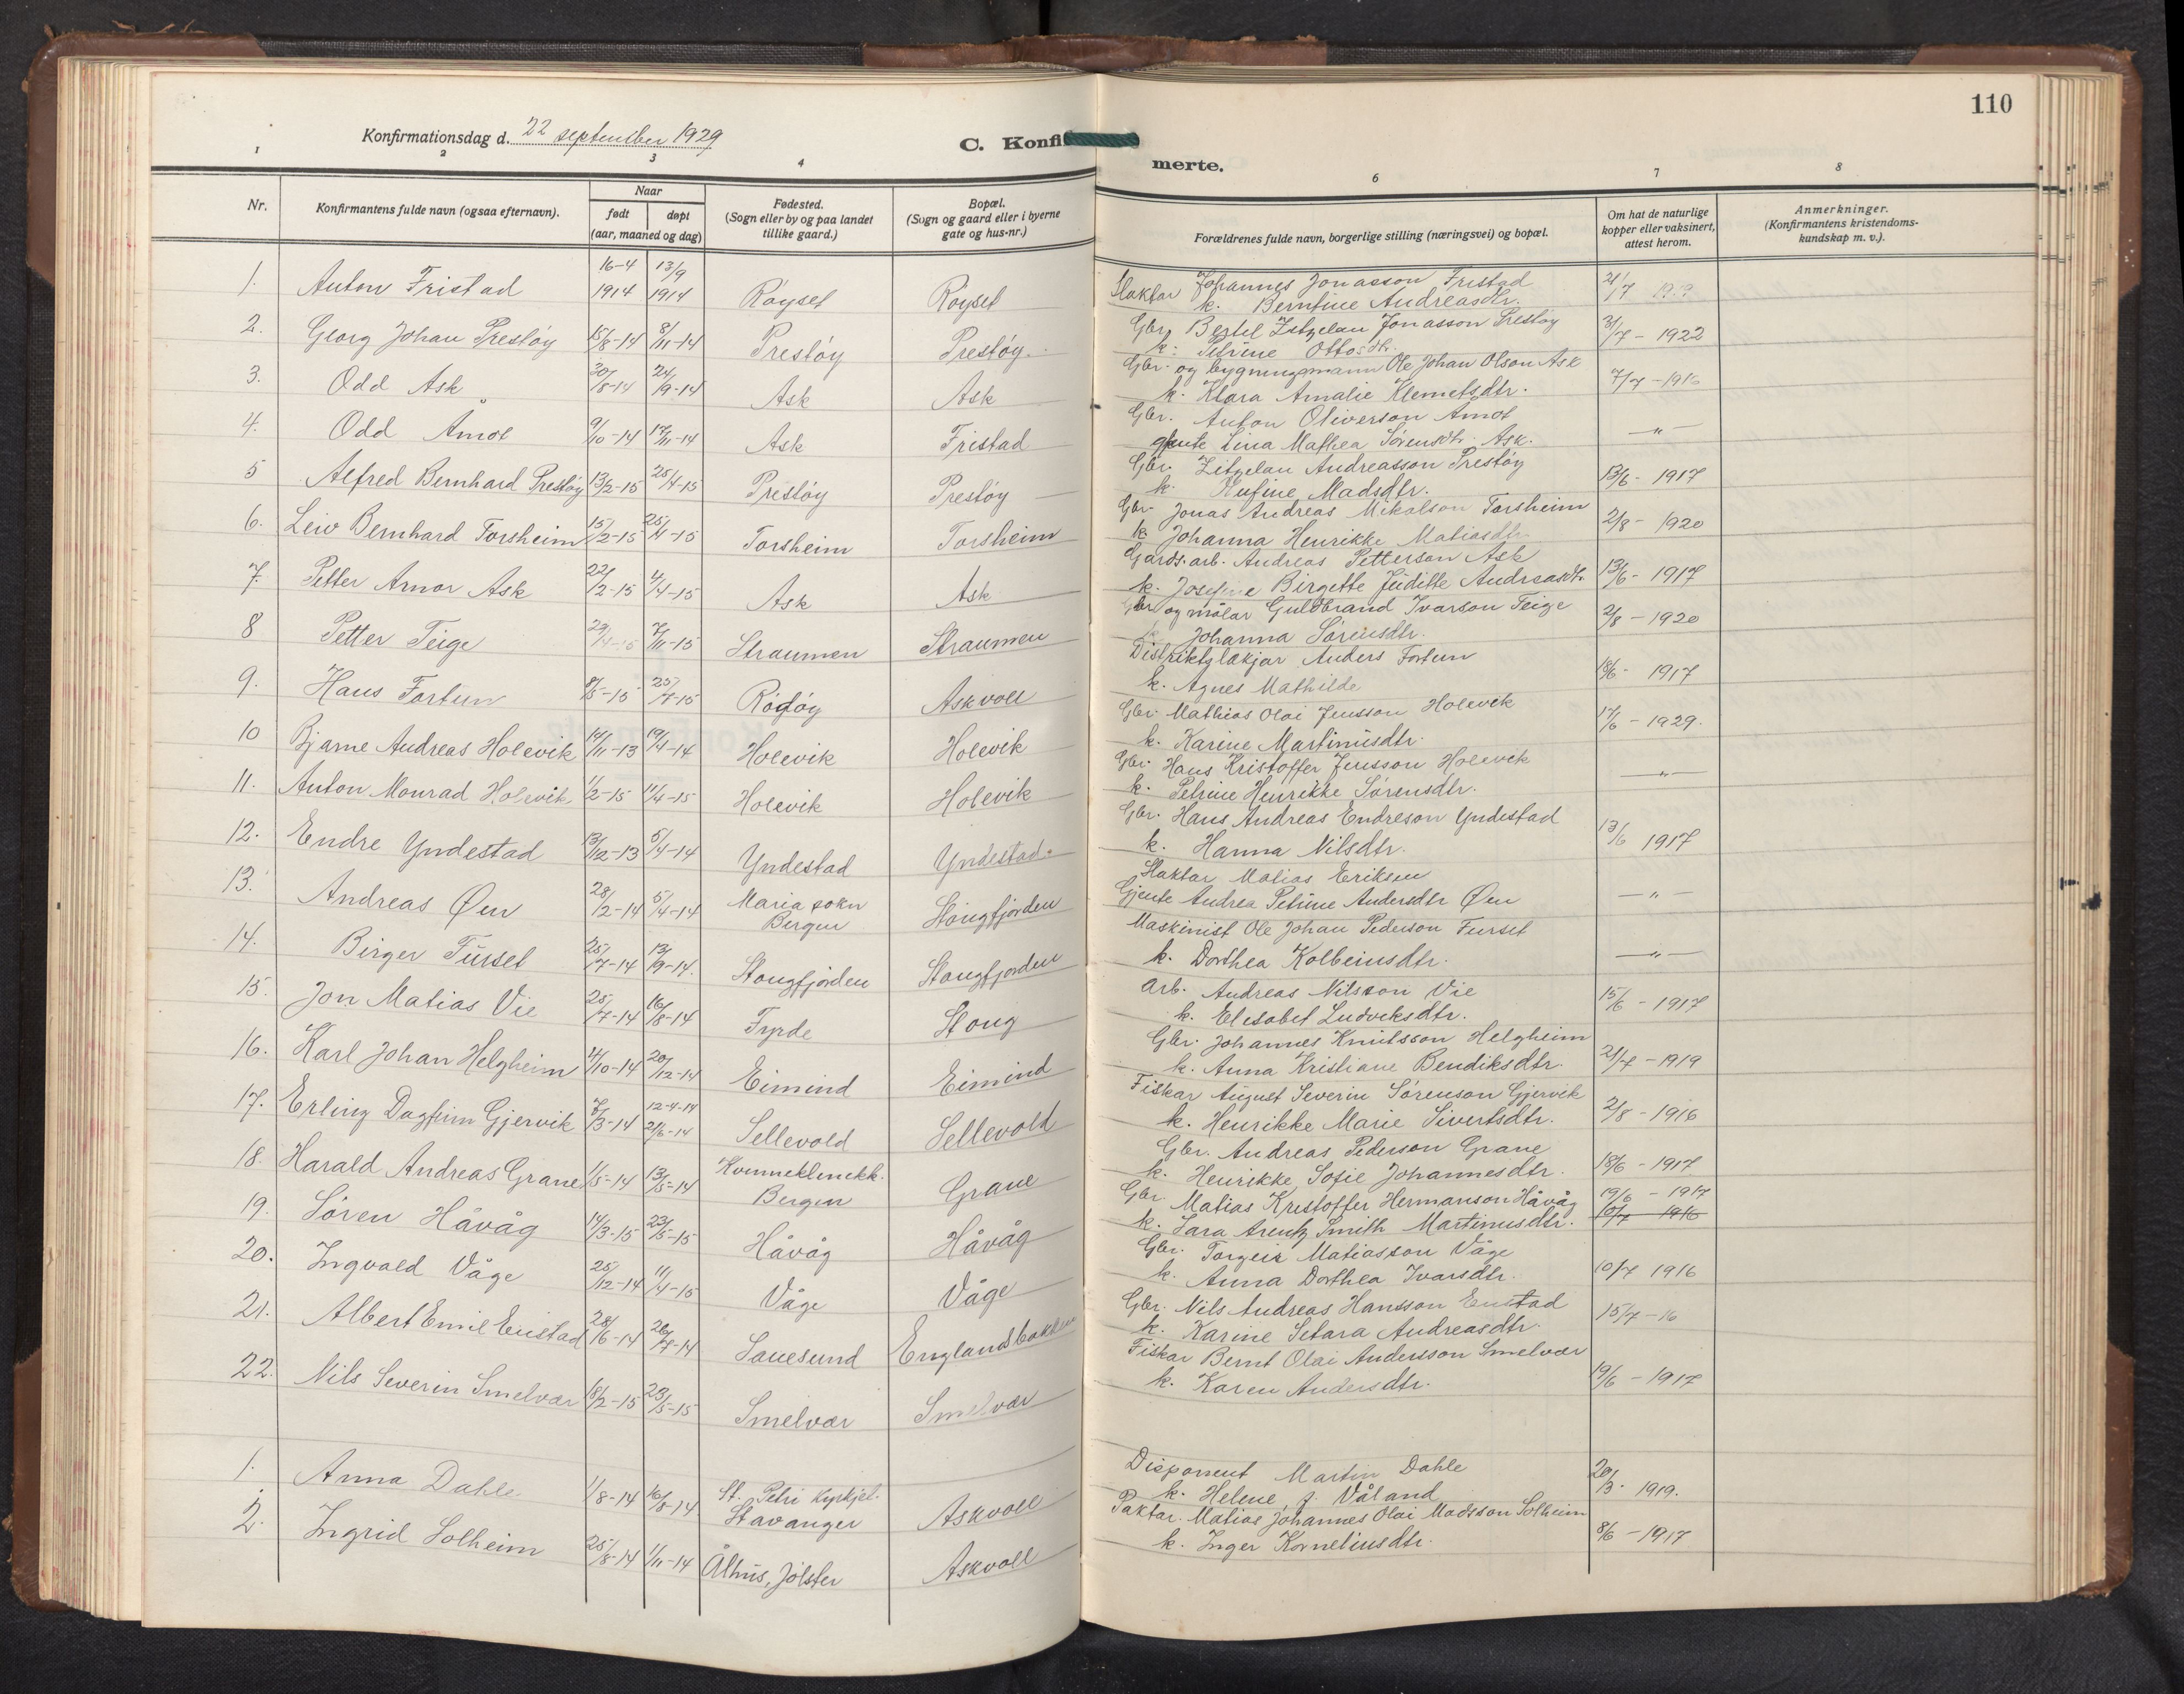 Konfirmationsdag d. 22 september 1929
C. Konfi
merte.
110
1 2 3 4 6 7 8
Nr.
Konfirmantens fulde navn (ogsaa efternavn).
Naar
født døpt
(aar, maaned og dag)
Fødested.
(Sogn eller by og paa landet
tillike gaard.)
Bopæl.
(Sogn og gaard eller i byerne
gate og hus-nr.)
Forældrenes fulde navn, borgerlige stilling (næringsvei) og bopæl.
Om hat de naturlige
kopper eller vaksinert,
attest herom.
Anmerkninger.
(Konfirmantens kristendoms-
kundskap m. v.).
1. Anton Fristad 16-4 1914 13/9 1914 Røysel Røysel
Slaktar Johannes Jonasson Fristad
k. Berntine Andreasdtr.
2. Georg Johan Prestøy 15/8-14 8/11-14 Prestøy Prestøy
Gbr. Bertel Zetzelau Jonasson Prestøy 31/7 - 1922
k. Petrine Ottosdtr.
3. Odd Ask 30/8-14 24/9-14 Ask Ask
Gbr. og bygningsmann Ole Johan Olson Ask
k. Klara Amalie Klemetsdtr. 7/7 - 1916
4. Odd Åmot 9/10-14 17/11-14 Ask Fristad
Gbr. Anton Oliverson Åmot
gjente Lina Mathea Sørensdtr. Ask. - " -
5 Alfred Bernhard Prestøy 13/2-15 25/4-15 Prestøy Prestøy
Gbr. Zitzelau Andreasson Prestøy
k. Rufine Madsdtr. 13/6 - 1917
6. Leiv Bernhard Torsheim 15/2-15 25/4-15 Torsheim Torsheim
Gbr. Jonas Andreas Mikalson Torsheim
k. Johanna Henrikke Matiasdtr. 2/8 - 1920
7. Petter Arnor Ask 22/2-15 4/4-15 Ask Ask
Gards.arb. Andreas Petterson Ask
k. Josefine Birgette Juditte Andreasdtr. 13/6 - 1917
8 Petter Teige 29/4-15 7/11-15 Straumen Straumen
Gbr og målar Guldbrand Ivarson Teige
k. Johanna Sørensdtr. 2/8 - 1920
9. Hans Fortun 8/5-15 25/7-15 Rødøy Askvoll
Distriktslækjar Anders Fortun
k. Agnes Mathilde 18/6 - 1917
10 Bjarne Andreas Holevik 14/11-13 19/4-14 Holevik Holevik
Gbr. Mathias Olai Jensson Holevik
k. Karine Martinusdtr. 17/6 - 1929.
11. Anton Monrad Holevik 1/2-15 11/4-15 Holevik Holevik
Gbr. Hans Kristoffer Jensson Holevik
k. Petrine Henrikke Sørensdtr. - " -
12. Endre Yndestad 13/12-13 5/4-14 Yndestad Yndestad
Gbr. Hans Andreas Endreson Yndestad
k. Hanna Nilsdtr. 13/6 1917
13. Andreas Øen 28/2-14 5/4-14 Maria sokn Bergen Stongfjorden
Slaktar Matias Eriksen
Gjente Andrea Petrine Andersdtr Øen - " -
14. Birger Furset 25/7-14 13/9-14. Stongfjorden Stongfjorden
Maskinist Ole Johan Pederson Furset
k. Dorthea Kolbeinsdtr. - " -
15. Jon Matias Vie 25/7-14 16/8-14 Fyrde Stong
Arb. Andreas Nilsson Vie
k. Elisabet Ludviksdtr. 15/6 - 1917
16. Karl Johan Helgheim 4/10-14 20/12-14 Eimind Eimind
Gbr. Johannes Knutsson Helgheim
k. Anna Kristiane Bendiksdtr. 21/7 - 1919
17. Erling Dagfinn Gjervik 7/3-14 12-4-14 21/6-14 Sellevold Sellevold
Fiskar August Severin Sørenson Gjervik
k. Henrikke Marie Sivertsdtr. 2/8 - 1916
18. Harald Andreas Grane 1/5-14 13/5-14 Kvinneklinikk. Bergen Grane
Gbr. Andreas Pederson Grane
k. Henrikke Sofie Johannesdtr. 18/6 - 1917
19. Søren Håvåg 14/3-15 23/5-15 Håvåg Håvåg
Gbr. Matias Kristoffer Hermanson Håvåg 19/6 - 1917
k. Sara Arentz Smith Martinusdtr. 10/7 1916
20. Ingvald Våge 25/12-14 11/4-15 Våge Våge
Gbr. Torgeir Matiasson Våge
k. Anna Dorthea Ivarsdtr. 10/7 1916
21. Albert Emil Eustad 28/6-14 26/7-14 Sauesund Englandsbakken
Gbr. Nils Andreas Hansson Eustad
k. Karine Setara Andreasdtr. 15/7-16
22. Nils Severin Smelvær 18/2-15 23/5-15 Smelvær Smelvær
Fiskar Bernt Olai Andersson Smelvær
k. Karen Andersdtr. 19/6 - 1917
1. Anna Dahle 1/8-14 16/8-14 St. Petri Kyrkjel. Stavanger Askvoll
Disponent Martin Dahle
k. Helene, f. Våland 20/3 - 1919.
2. Ingrid Solheim 25/8-14 1/11-14 Ålhus, Jølster Askvoll
Paktar. Matias Johannes Olai Madsson Solheim
k. Inger Korneliusdtr. 8/6 - 1917